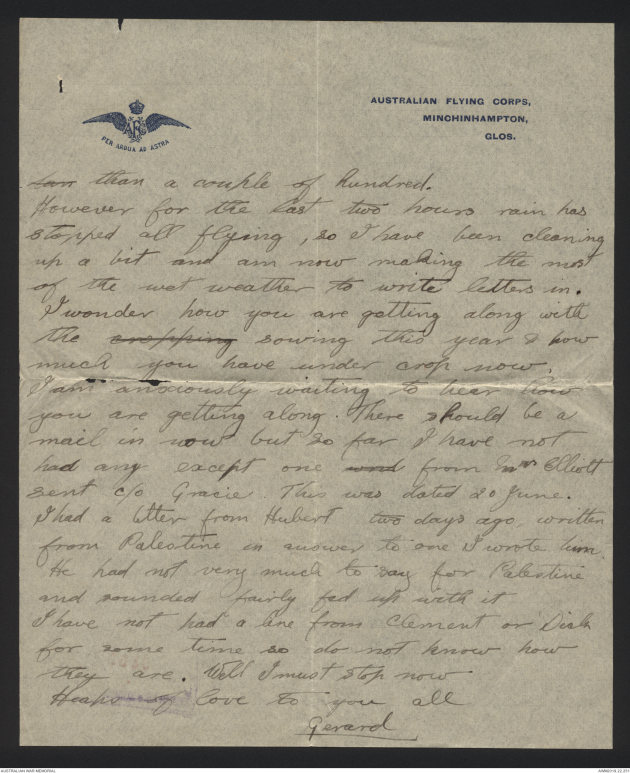 AUSTRALIAN FLYING CORPS,
MINCHINHAMPTON,
GLOS.
AFC
PER ARDUA AD ASTRA
than a couple of hundred.
However for the last two hours rain has
stopped all flying, so I have been cleaning
up a bit and am now making the most
of the wet weather to write letters in.
I wonder how you are getting along with
the cropping sowing this year & how
much you have under crop now.
I am anxiously waiting to hear how
you are getting along. There should be a
mail in now but so far I have not
had any except one from Mrs Elliott
sent c/o Gracie. This was dated 20 June.
I had a letter from Hubert two days ago, written
from Palestine in answer to one I wrote him.
He had not very much to say for Palestine
and sounded fairly fed up with it
I have not had a line from Clement or Dick
for some time so do not know how
they are. Well I must stop now
Heaps of love to you all
Gerard
AUSTRALIAN WAR MEMORIAL